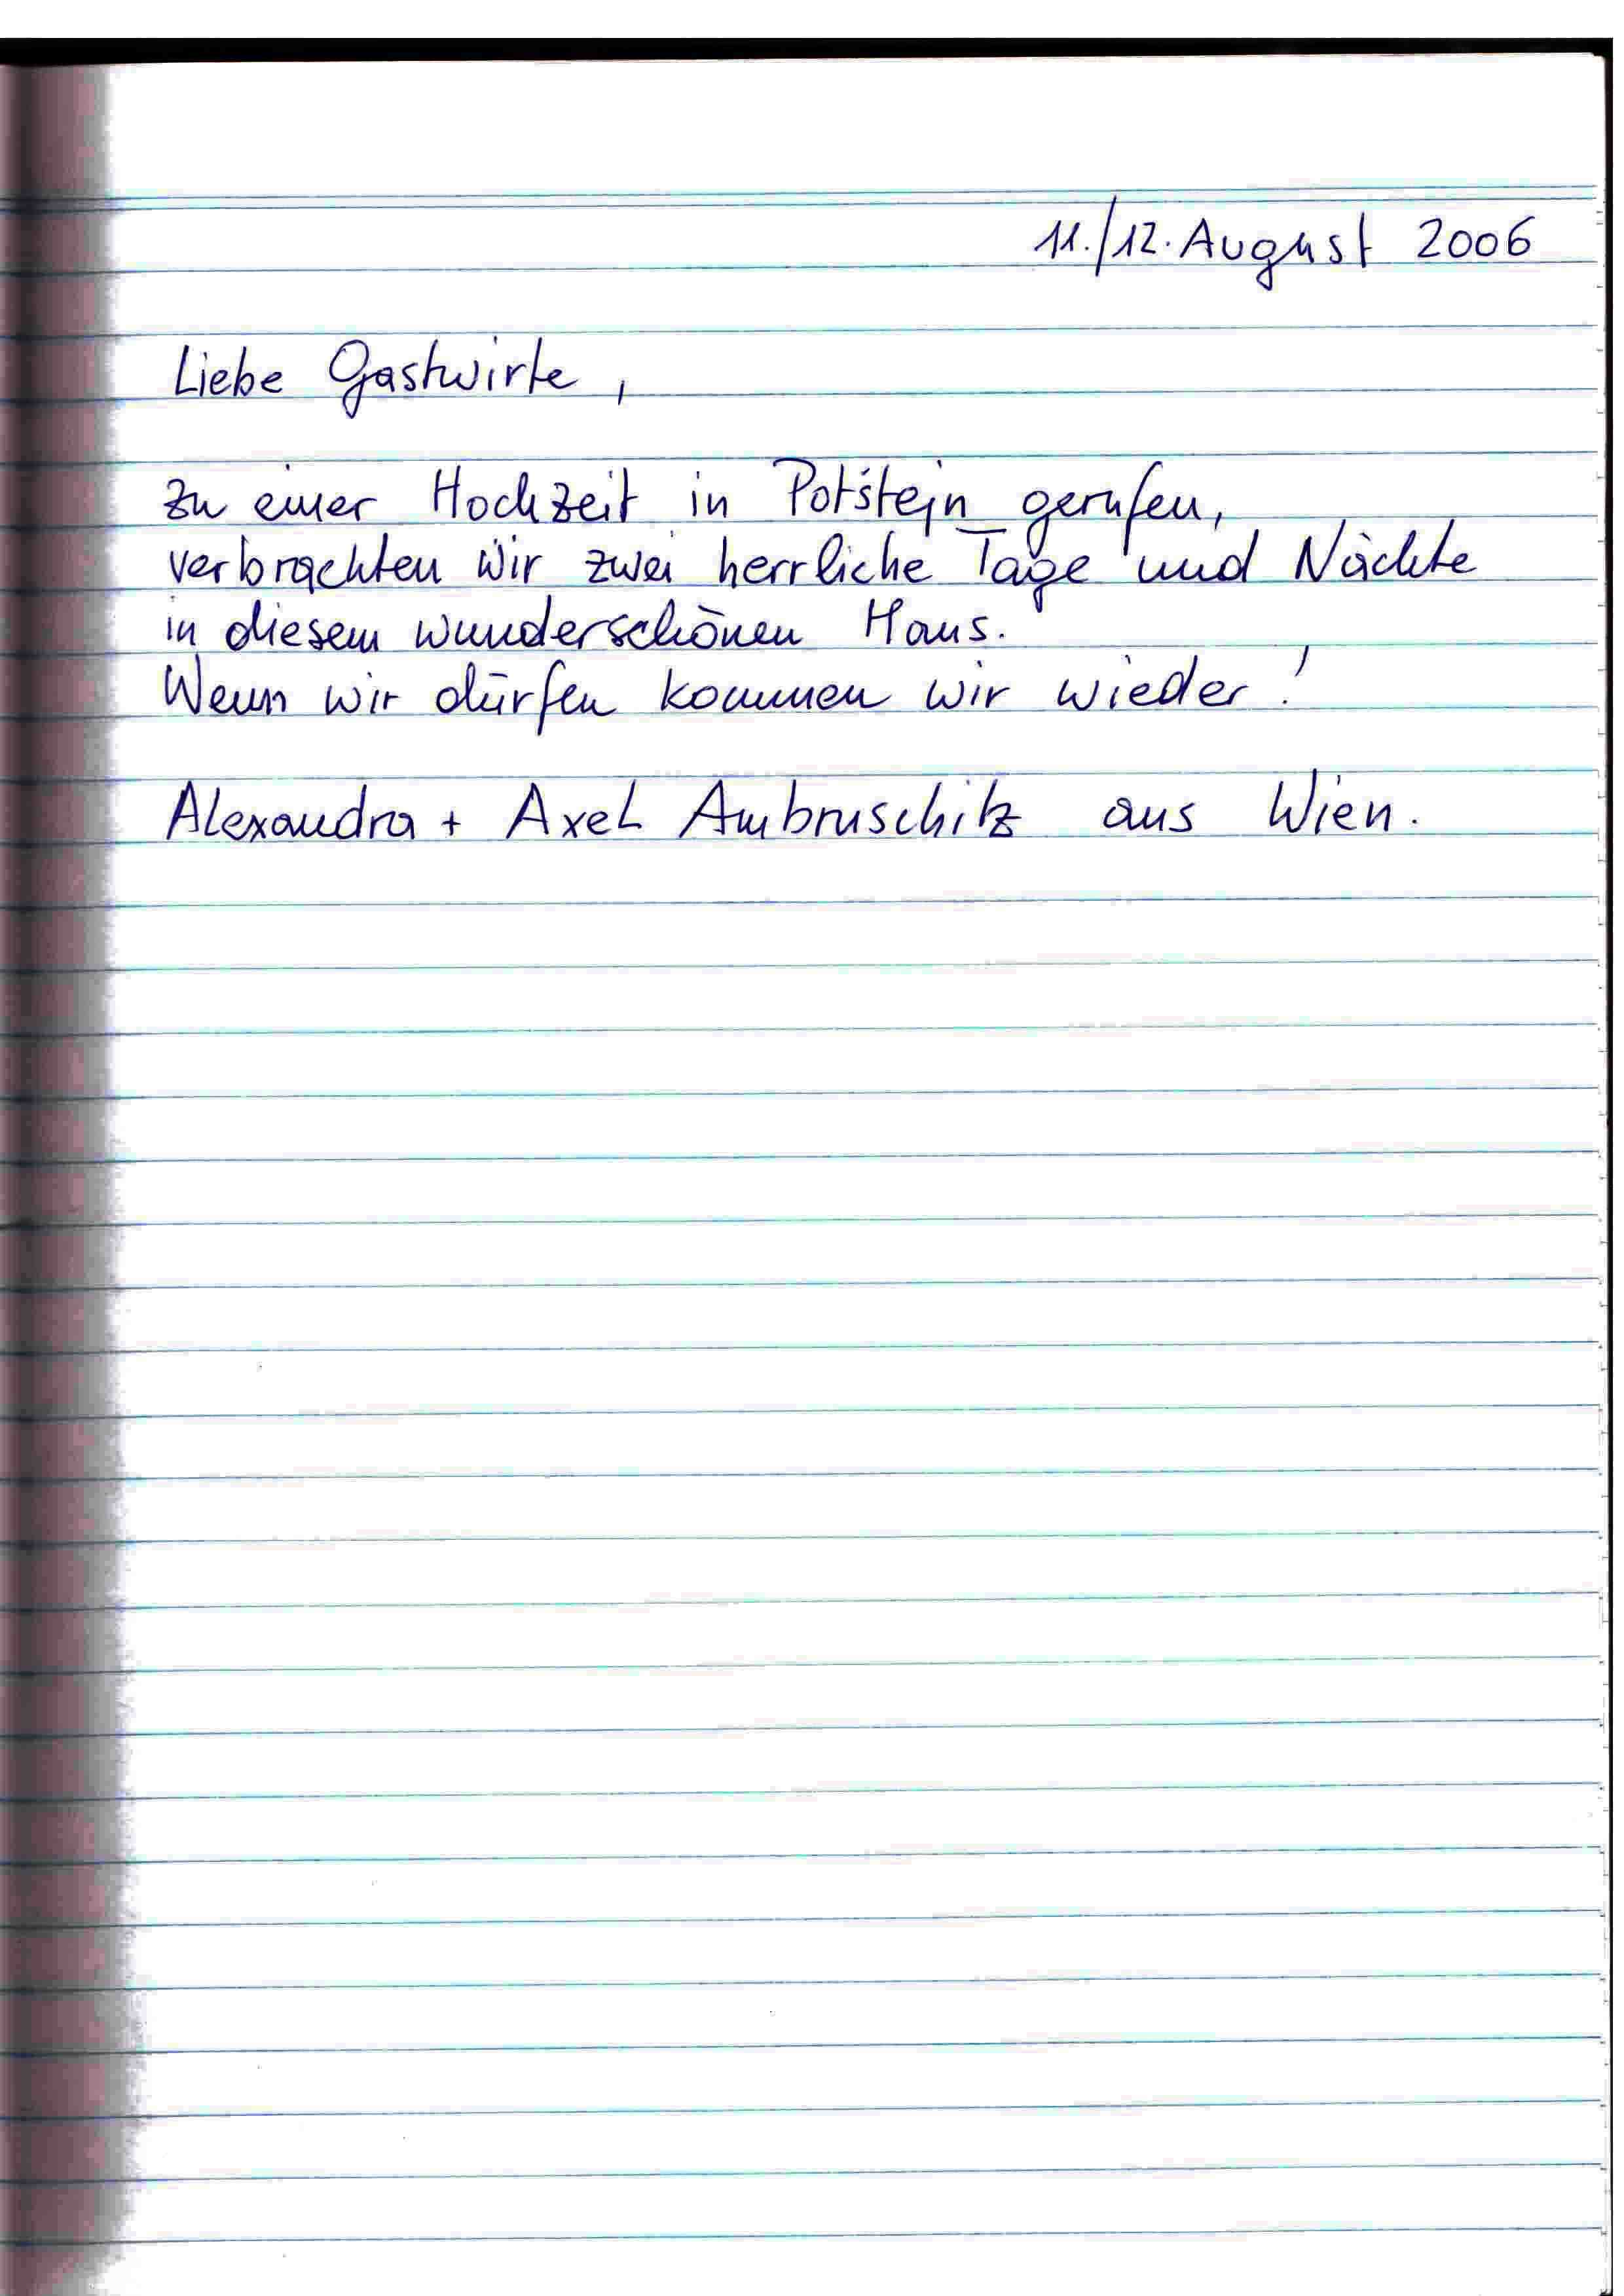 11./12. August 2006
Liebe Gastwirte,
zu einer Hochzeit in Potštejn gerufen,
verbrachten wir zwei herrliche Tage und Nächte
in diesem wunderschönen Haus.
Wenn wir dürfen kommen wir wieder!
Alexandra + Axel Ambruschitz aus Wien.